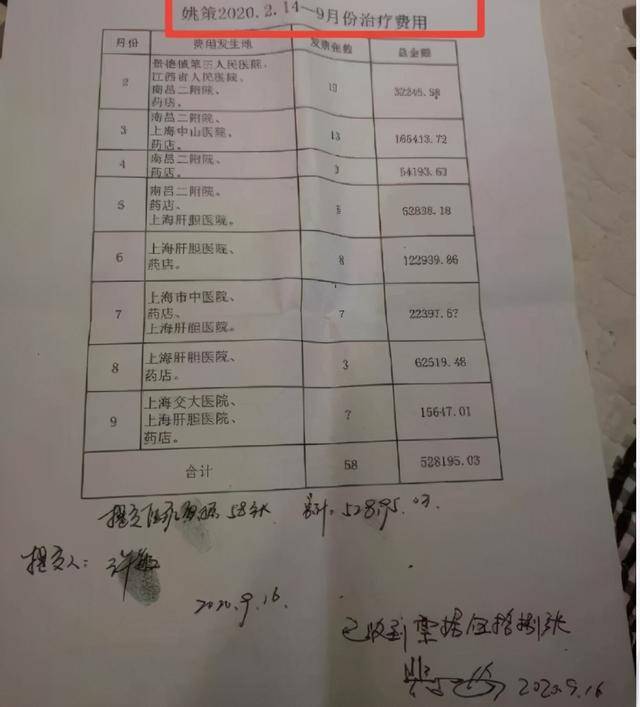 姚策2020.2.14—9月份治疗费用
月份 费用发生地 发票张数 总金额
2 景德镇第三人民医院、
江西省人民医院、
南昌二附院、
药店。
3 南昌二附院、 13 165413.72
上海中山医院、
药店。
4 南昌二附院、 54193.63
药店。
5 南昌二附院、
药店、
上海肝胆医院。
6 上海肝胆医院、 8 122939.86
药店。
7 上海市中医院、 7 22397.57
药店。
上海肝胆医院。
8 上海肝胆医院、 3 62519.48
药店。
9 上海交大医院、 7 15647.01
上海肝胆医院、
药店。
合计 58 528195.03
提交 58张 累计: 528195.03
提交人: 许敏
2020.9.16.
已收到票据 张
2020.9.16